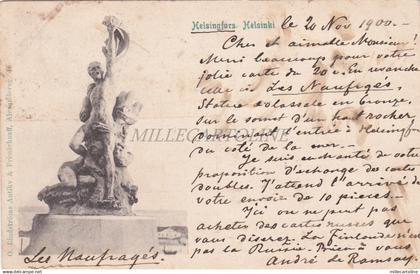 Helsingfors. Helsinki le 20 Nov 1900.
Cher et aimable Monsieur!
Merci beaucoup pour votre
jolie carte du 20 c. En revanche
celle-ci Les Naufragés,
Statue colossale en bronze,
sur le sommet d'un haut rocher
dominant l'entrée à Helsing
du côté de la mer.—
Je suis enchanté de votre
proposition d'échange des cartes
doubles. J'attend l'arrivée de
votre envoi de 10 pièces.—
Ici on ne peut pas
acheter des cartes russes que
vous désirez. La Finlande n'est
pas la Russie. Rien à vous
André de Ramsay
Les Naufragés.
MILLECARTOLINE
O. Lindströms Antikv. & Frimärkaff, Alexandersg.